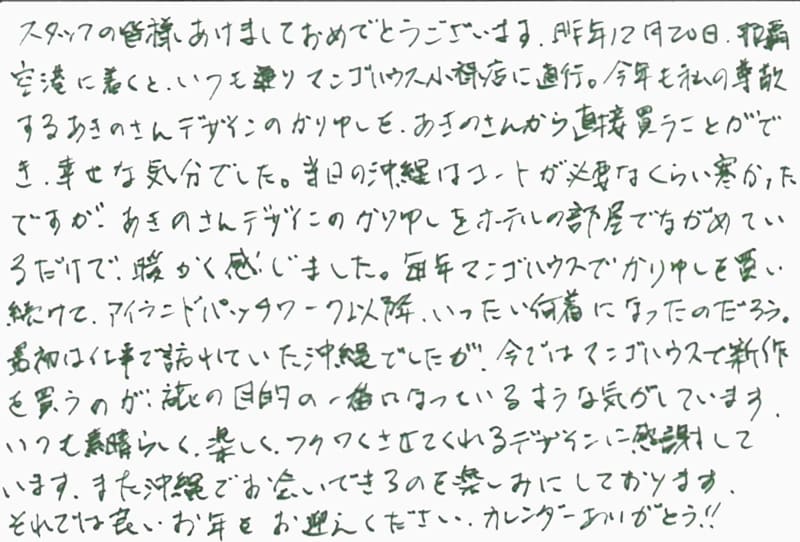 スタッフの皆様、あけましておめでとうございます。昨年12月20日、那覇
空港に着くと、いつも通りマンゴハウス小禄店に直行。今年も私の尊敬
するあきのさんデザインのかりゆしを、あきのさんから直接買うことがで
き、幸せな気分でした。当日の沖縄はコートが必要なくらい寒かった
ですが、あきのさんデザインのかりゆしをホテルの部屋でながめてい
るだけで、暖かく感じました。毎年マンゴハウスでかりゆしを買い
続けて、アイランドパッチワーク以降、いったい何着になったのだろう。
最初は仕事で訪れていた沖縄でしたが、今ではマンゴハウスで新作
を買うのが、旅の目的の一番になっているような気がしています。
いつも素晴らしく、楽しく、ワクワクさせてくれるデザインに感謝して
います。また沖縄でお会いできるのを楽しみにしております。
それでは良いお年をお迎えください。カレンダーありがとう!!